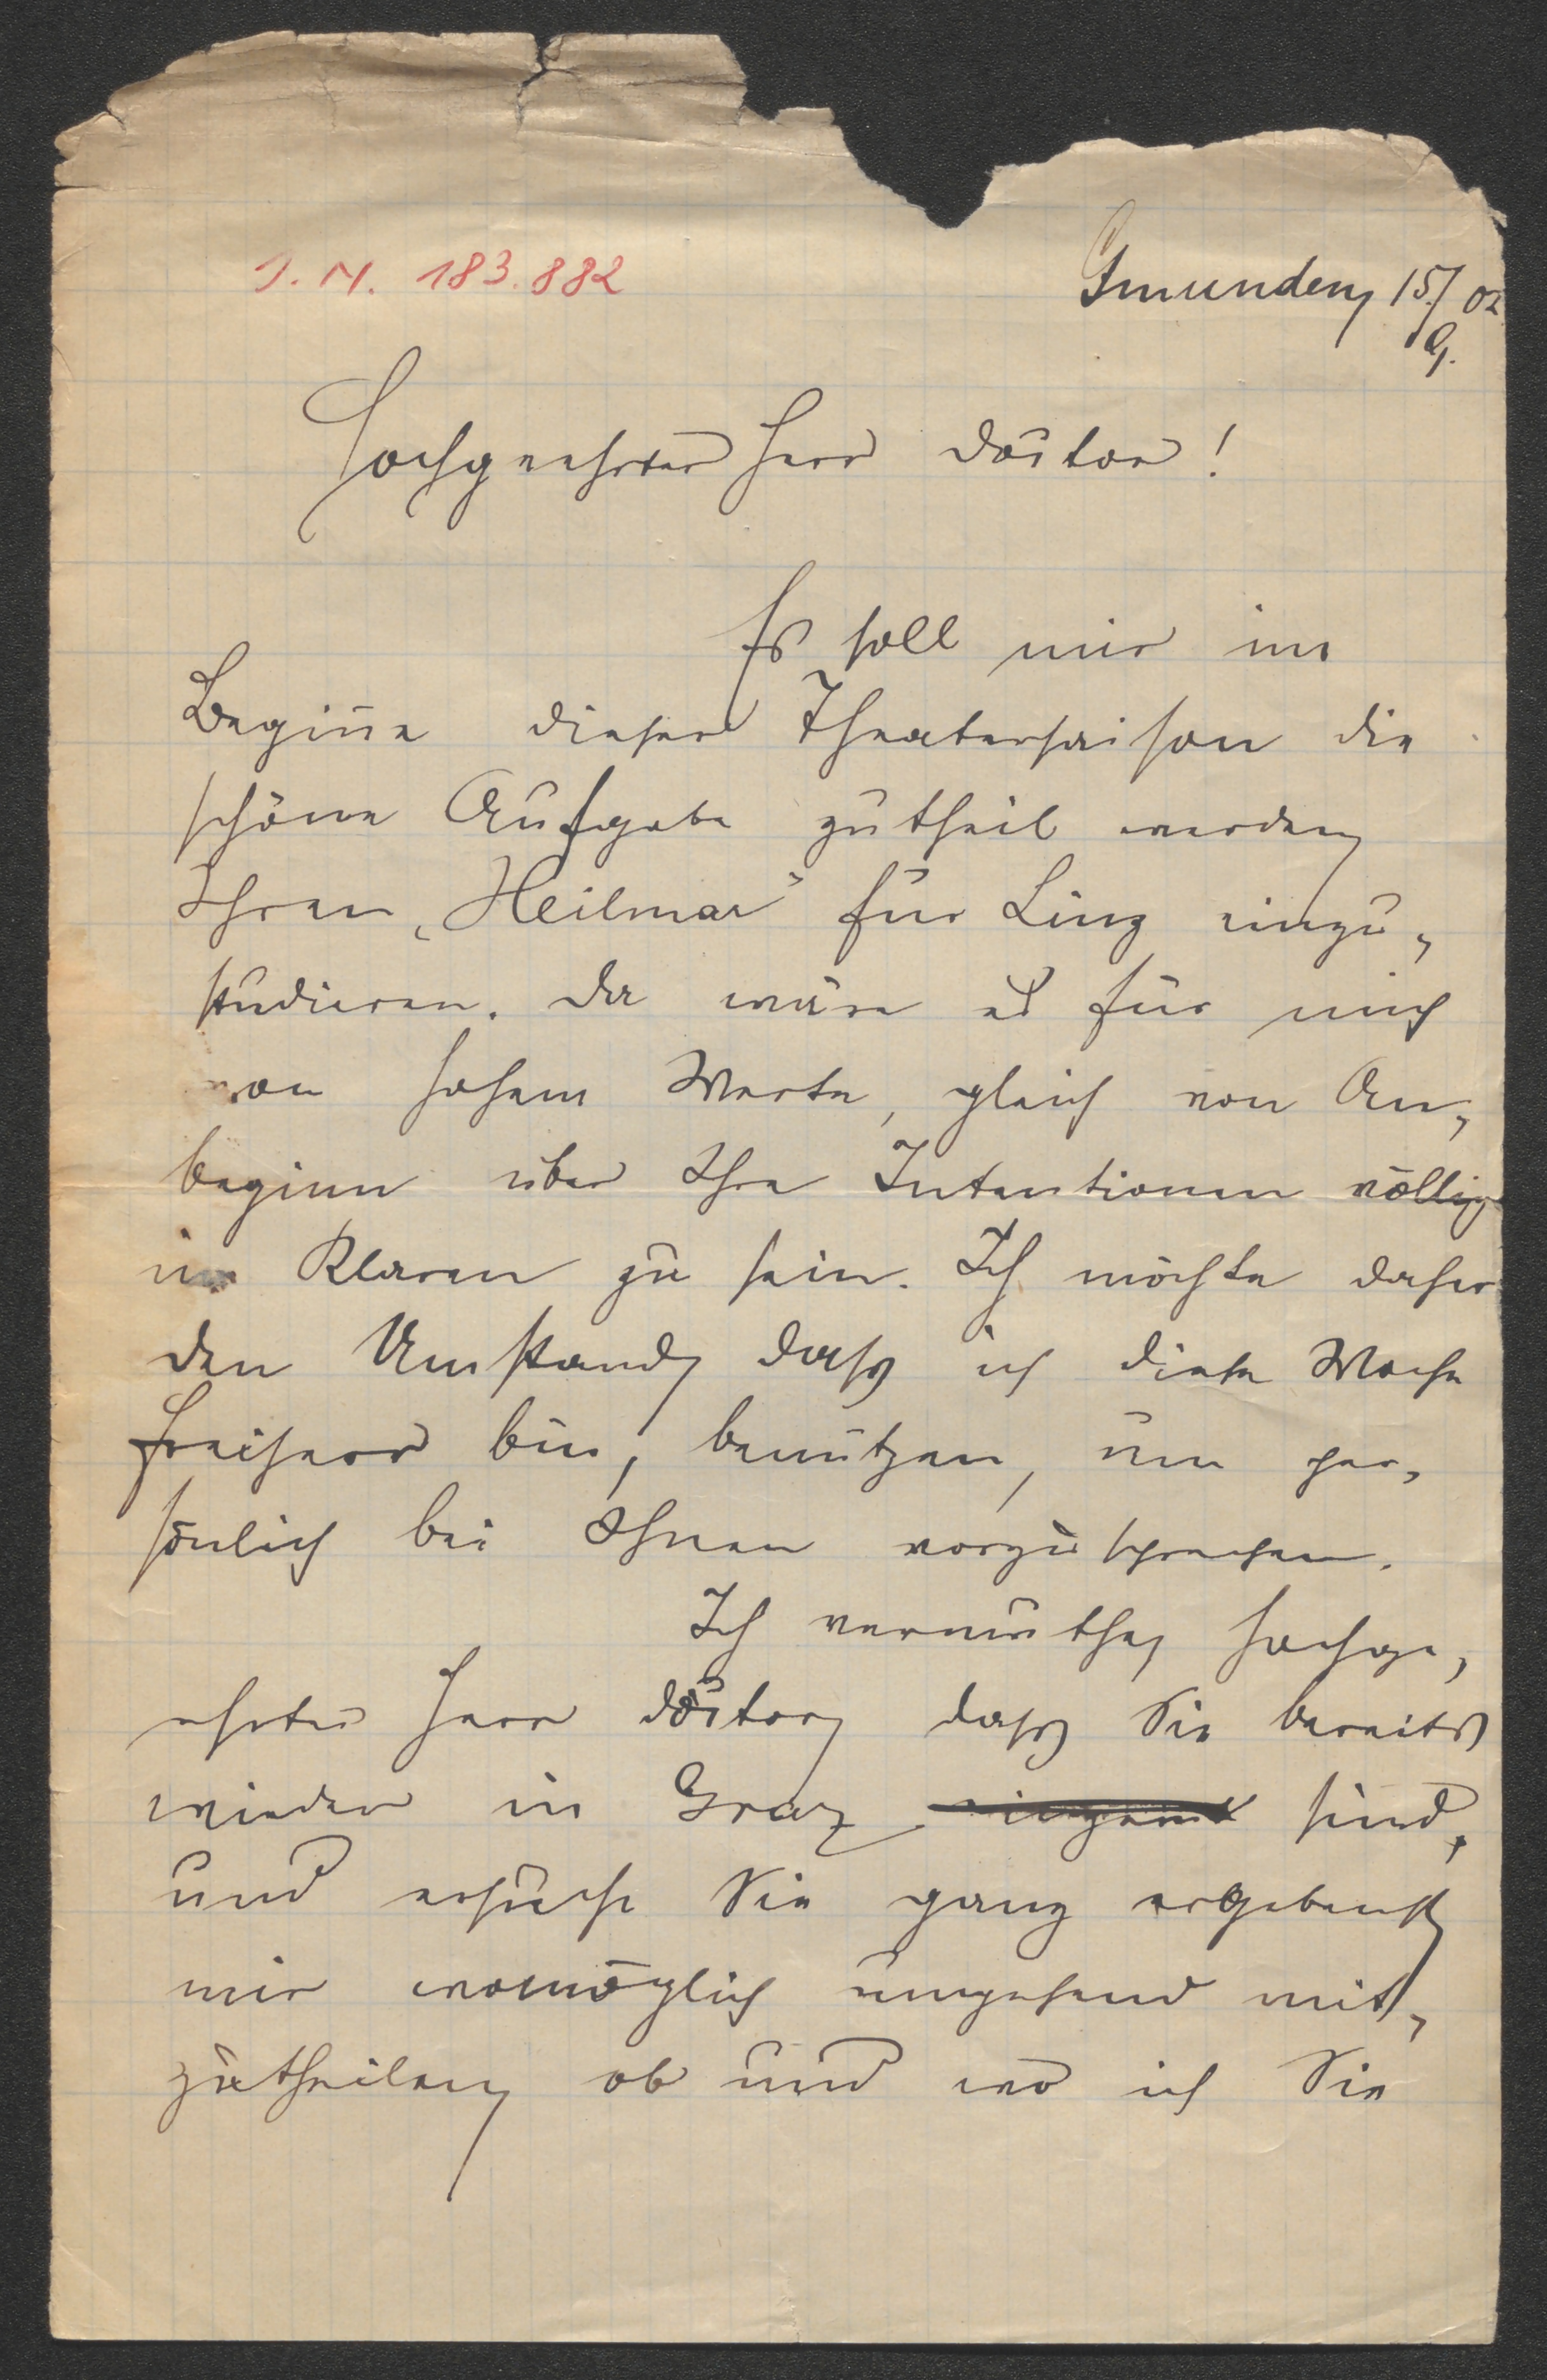 I. N. 183.882
Gmunden, 15./02
9.
Hochgeehrter Herr Doctor!
Es soll mir im
Beginne dieser Theatersaison die
schöne Aufgabe zutheil werden,
Ihren „Heilmar" für Linz einzu-
studieren. Da wäre es für mich
von hohem Werte, gleich von An-
beginn über Ihre Intentionen völlig
im Klaren zu sein. Ich möchte daher
den Umstand, dass ich diese Woche
Freiherr bin, benützen, um per-
sönlich bei Ihnen vorzusprechen.
Ich vermuthe, hochge-
ehrter Herr Doctor, dass Sie bereits
wieder in Graz sind,
und ersuche Sie ganz ergebenst,
mir womöglich umgehend mit-
zutheilen, ob und wo ich Sie